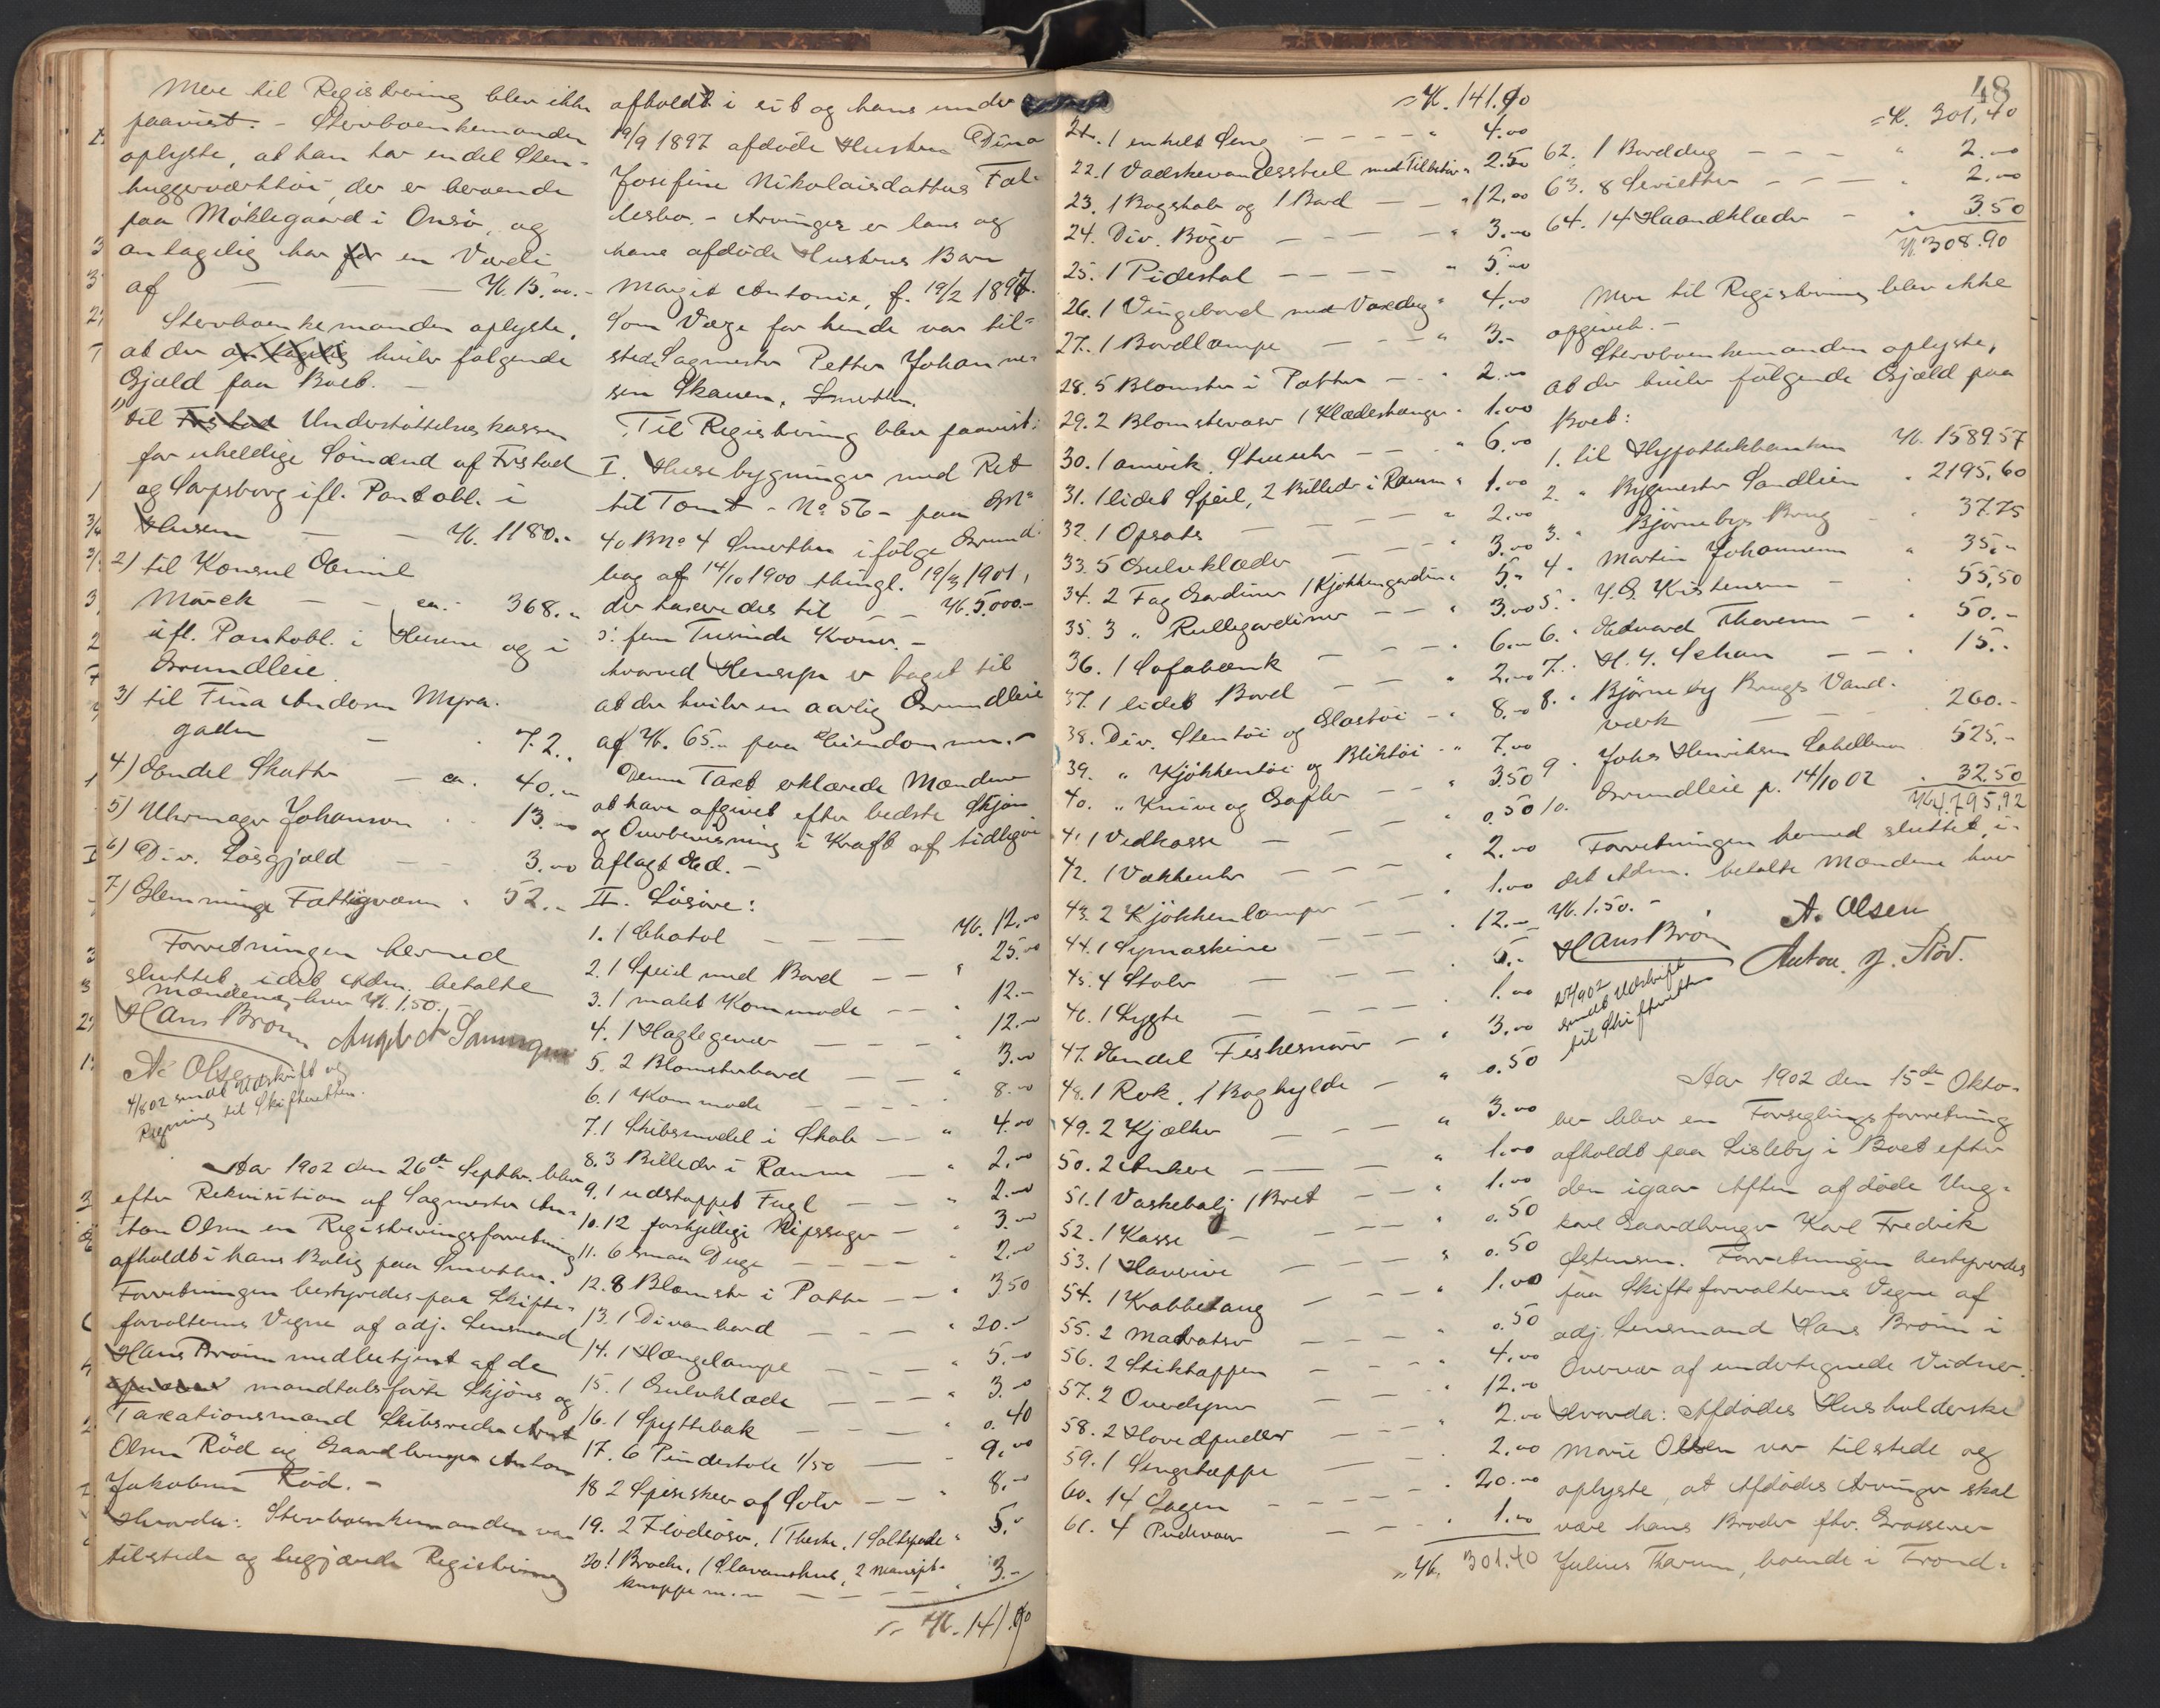 Mere til Registrering blev ikke
paavist. - Stervboenkemanden
oplyste, at han har endel Sten-
huggerværktöi, der er beroende
paa Möklegaard i Onsö, og
antagelig har en Værdi
af — — — K. 15.00.-
Stervboenkemanden oplyste,
at der hviler fölgende
Gjæld paa Boet. -
1) til Understöttelseskassen
for uheldige Sömænd af Frstad
og Sarpsborg ifl. Pantobl. i
Husene — — K. 1180.-
2) til Konsul Emil
Mörck — — ca. - 368.-
ifl. Pantobl. i Husene og i
Grundleie.
3) til Tina Andersen Myra.
gaden — . 72..
4) Endel Skatter — ca. 40.-
5) Uhrmager Johansen . . 13.00
6) Div. Lösgjæld — — 3.00
7) Glemminge Fattigvæsen . 52.-
Forretningen hermed
sluttet, idet Adm. betalte
Mændene hver K. 1.50.-
Hans Bröin
A. Olsen
4/802 sendt Udskrift og
Regning til Skifteretten.
Aar 1902 den 26de Septbr. blev
efter Rekvisition af Sagmester An-
ton Olsen en Registreringsforretning
afholdt i hans Bolig paa Smertha.
Forretningen bestyredes paa Skifte-
forvalterens Vegne af adj. Lensmand
Hans Bröin med betjent af de
mandtalsförte Skjöns og
Taxationsmænd Skibsreder Arnt
Olsen Röd og Gaardbruger Anton
Jakobsen Röd. -
Hvorda: Stervboenkemanden var
tilstede og begjærede Registrering
afholdt i sit og hans under
19/9 1897 afdöde Hustru Dina
Josefine Nikolaisdatters Fæl-
lesbo. - Arvinger er hans og
hans afdöde Hustrus Barn
Margit Antonie, f. 19/2 1897.
Som Værge for hende var til-
stede Sagmester Petter Johanne-
sen Skauen, Smertha.
Til Registrering blev paavist:
I. Husebygninger med Ret
til Tomt - No 56 - paa GNo
40 BNo 4 Smertha ifölge Grund-
brev af 14/10 1900 thingl. 19/3 1901,
der taxeredes til — — K. 5.000.-
ɔ: fem Tusinde Kroner. -
hvorved Hensyn er taget til
at der hviler en aarlig Grundleie
af K. 65.- paa Eiendommen. -
Denne Taxt erklærede Mændene
at have afgivet efter bedste Skjön
og Overbevisning i Kraft af tidligere
aflagt Ed. -
II. Lösöre:
1. 1 Chatol — — — K. 12.00
2. 1 Speil med Bord — — " 25.00
3. 1 malet Kommode — — . 12.-
4. 1 Haglegevær — — — . 12.00
5. 2 Blomsterbord — — " 3.00
6. 1 Kommode — — — . 8.00
7. 1 Skibsmodel i Skab — — " 4.00
8. 3 Billeder i Ramme — " 2.00
9. 1 udstoppet Fugl — — " 2.00
10. 12 forskjellige Nipssager — . 3.00
11. 6 smaa Duge — — — . 2.00
12. 8 Blomster i Potter — — . 3 50
13. 1 Divanbord — — — . 20.-
14. 1 Hængelampe — — " 5.00
15. 1 Gulvklæde — — — . 3.00
16. 1 Spyttebak — — — " 0.40
17. 6 Pindestole 1/50 — — 9.00
18 2 Spiseskeer af Sölv — — " 8.-
19. 2 Flödeöser, 1 Theske, 1 Saltspade " 5.-
20. 1 Broche, 1 Slavanskel, 2 Mansjet-
knapper m.m — — — . 3.-
= K. 141.90
48
= K. 141.90
21. 1 enkelt Seng — — — " 4.00
22. 1 Vadskevandsstel med Tilbehör " 2.50
23. 1 Bogskab og 1 Bord — — " 12.00
24. Div. Böger — — — — " 3.00
25. 1 Pidestal — — — — " 5.00
26. 1 Vingebord med Voxdug " 4.00
27. 1 Bordlampe — — — " 3.-
28. 5 Blomster i Potter — . 2.00
29. 2 Blomstervaser 1 Klædeshænger . 1.00
30. 1 amerik. Stueuhr — — " 6.00
31. 1 lidet Speil, 2 Billeder i Ramme " 1.00
32. 1 Opsats — — — — " 2.00
33. 5 Gulvklæder — — — . 3.00
34. 2 Fag Gardiner 1 Kjökkengardin " 5.-
35. 3 " Rullegardiner — — . 3.00
36. 1 Sofabænk — — — . 6.00
37. 1 lidet Bord — — — " 2.00
38. Div. Stentöi og Glastöi — . 8.00
39. " Kjökkentöi og Bliktöi . " 7.00
40. " Knive og Gafler — — " 3 50
41. 1 Vedkasse — — — . 0.50
42. 1 Vækkeuhr — — — . 2.00
43. 2 Kjökkenlamper — — . 1.00
44. 1 Symaskine — — — . 12.-
45. 4 Stoler — — — . 5.-
46. 1 Lygte — — — — . 1.00
47. Endel Fiskesnörer — " 3.00
48. 1 Rok, 1 Boghylde — " 0.50
49. 2 Kjælker — — — " 3.00
50. 2 Ankere — — — " 1.00
51. 1 Vaskebalj 1 Bret — — " 1.00
52. 1 Kasse — — — — " 0.50
53. 1 Haverive — — — " 0.50
54. 1 Krabbetang — — — " 1.00
55. 2 Madratser — — — " 0.50
56. 2 Stiktæpper — — — . 4.00
57. 2 Overdyner — — — " 12.00
58. 2 Hovedpuder — — — " 2.00
59. 1 Sengetæppe — — — . 2.00
60. 14 Lagen — — — — . 20.00
61. 4 Pudevaar — — — . 1.00
= K. 301.40
= K. 301,40
62. 1 Borddug — — — " 2.00
63. 8 Servietter — — — . 2.00
64. 14 Haandklæder — . 3.50
K. 308.90
Mere til Registrering blev ikke
opgivet. -
Stervboenkemanden oplyste,
at der hviler fölgende Gjæld paa
Boet:
1. til Hypothekbanken K. 1589.57
2. " Bygmester Sandlien . 2195,60
3. " Björneby Brug — . 37.75
4. " Martin Johannesen " 35.-
5. . K. G. Kristensen — . 55,50
6. . Edvard Thoresen — . 50.-
7. . H. J. Schou — — . 15.-
8. . Björneby Brugs Vand-
værk — — . 260.-
9. . Johs Henriksen . 525.-
10. Grundleie p. 14/10 02 . 32.50
K. 4.795,92
Forretningen hermed sluttet, i-
det Adm. betalte Mændene hver
K. 1.50. -
A. Olsen
Hans Bröin
Anton. J. Röd.
27/902
sendt Udskrift
til Skifteretten
Aar 1902 den 15de Okto-
ber blev en Forseglingsforretning
afholdt paa Lisleby i Boet efter
den igaar Aften afdöde Ung-
karl Gaardbruger Karl Fredrik
Östensen. Forretningen bestyredes
paa Skifteforvalterens Vegne af
adj. Lensmand Hans Bröin i
Overvær af undertegnede Vidner.
Hvorda: Afdödes Husholderske
Marie Olsen var tilstede og
oplyste, at Afdödes Arvinger skal
være hans Broder fhv. Grosserer
Julius Tharum, boende i Trond-